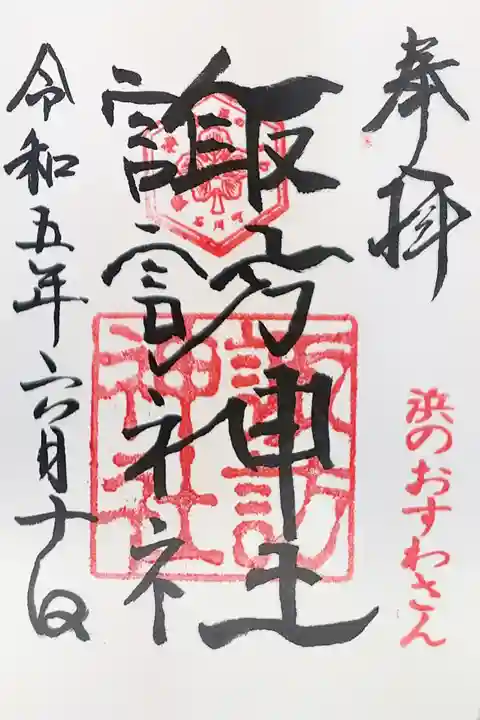 奉拝
浜のおすわさん
諏訪神社
諏訪神社
令和五年六月十日